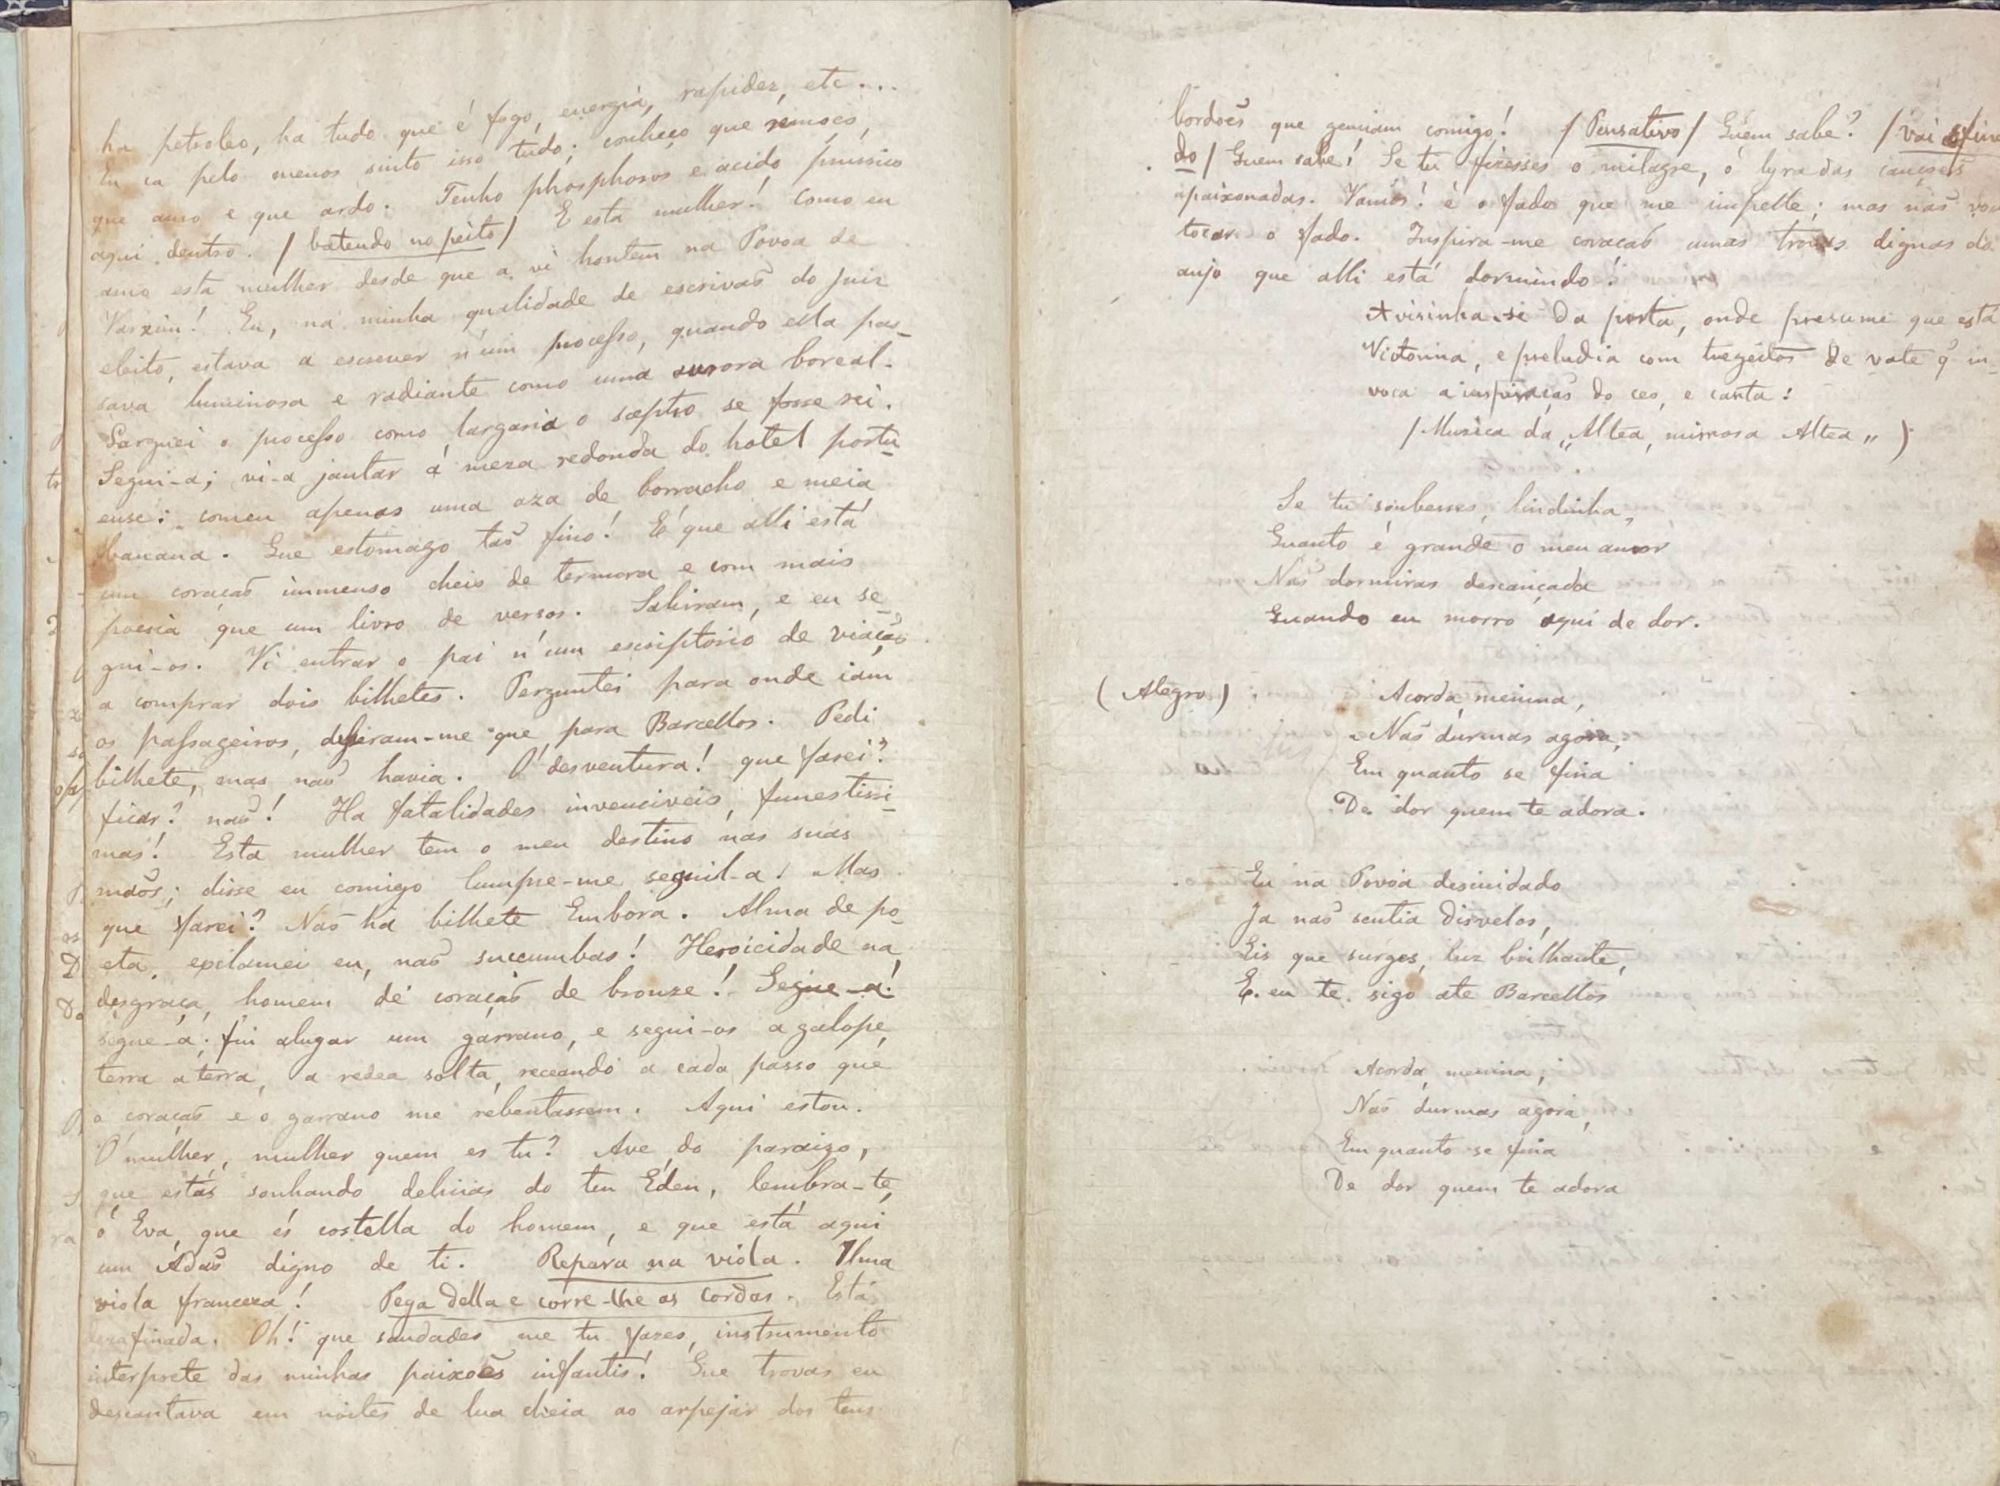 ha petroleo, ha tudo que é fogo, energia, rapidez, etc...
Eu ca pelo menos sinto isso tudo; conheço que
que amo e que ardo. Tenho phosphoros e acido prussico
aqui dentro. / batendo no peito / E esta mulher! Como eu
amo esta mulher desde que a vi hontem na Povoa de
Varzim! Eu, na minha qualidade de escrivaõ do juiz
eleito, estava a escrever n'um processo, quando ella pas-
sava luminosa e radiante como uma aurora boreal.
Larguei o processo como largaria o sceptro se fosse rei.
Segui-a; vi-a jantar á meza redonda do hotel portu-
ense: comeu apenas uma aza de borracho e meia
banana. Que estomago taõ fino! É que alli está
um coraçaõ immenso cheio de ternura e com mais
poesia que um livro de versos. Sahiram, e eu se-
gui-os. Vi entrar o pai n'um escriptorio de viaçaõ
a comprar dois bilhetes. Perguntei para onde iam
os passageiros, disseram-me que para Barcellos. Pedi
bilhete, mas naõ havia. O' desventura! que farei?
ficar? naõ! Ha fatalidades invenciveis, funestissi-
mas! Esta mulher tem o meu destino nas suas
maõs; disse eu comigo cumpre-me seguil-a! Mas
que farei? Naõ ha bilhete Embora. Alma de po-
eta, exclamei eu, naõ succumbas! Heroicidade na
desgraça, homem de coraçaõ de bronze! Segue-a!
segue-a; fui alugar um garrano, e segui-os a galope,
terra a terra, a redea solta, receando a cada passo que
o coraçaõ e o garrano me rebentassem. Aqui estou.
O' mulher, mulher quem es tu? Ave do paraizo,
que estás sonhando delicias do teu Éden, lembra-te,
ó Eva, que és costella do homem, e que está aqui
um Adaõ digno de ti. Repara na viola. Uma
viola franceza! Pega della e corre-lhe as cordas. Está
dezafinada. Oh! que saudades me tu fazes, instrumento
interprete das minhas paixoẽs infantis! Que trovas eu
descantava em noites de lua cheia ao arpejar dos teus
bordoẽs que gemiam comigo! / Pensativo / Quem sabe? / Vai afinan
do / Quem sabe! Se tu fizesses o milagre, ó lyra das cançoẽs
apaixonadas. Vamos! é o fado que me impelle; mas naõ vou
tocar o fado. Inspira-me coraçaõ umas trovas dignas do
anjo que alli está dormindo!
Avisinha-se da porta, onde presume que está
Victorina, e preludia com tregeitos de vate q̃ in-
voca a inspiraçaõ do ceo, e canta:
/ Muzica da „Altea, mimosa Altea„ )
Se tu soubesses, lindinha,
Quanto é grande o meu amor
Naõ dormiras descançada
Quando eu morro aqui de dor.
(Alegro) Acorda, menina,
Naõ durmas agora,
Em quanto se fina
De dor quem te adora.
Eu na Povoa descuidado
Ja naõ sentia disvelos,
Eis que surges, luz brilhante,
E eu te sigo ate Barcellos
Acorda, menina,
Naõ durmas agora,
Em quanto se fina
De dor quem te adora